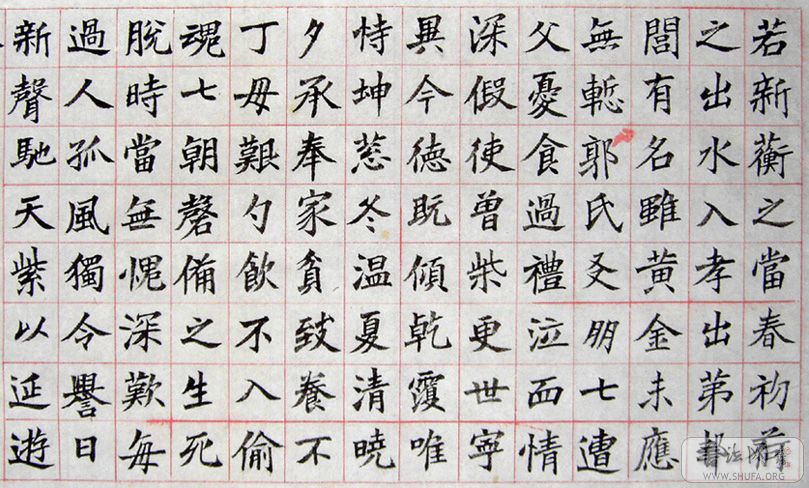 若新蘅之當春初前
之出水入孝出弟
閭有名雖黃金未應
無暫郭氏友朋七遭
父憂食過禮泣而情
深假使曾柴更世寧
異今德既傾乾覆唯
恃坤慈冬温夏清曉
夕承奉家貧致養不
丁毋艱勺飲不入偷
魂七朝磬備之生死
脫時當無愧深歎每
過人孤風獨令譽日
新聲馳天紫以延遊
WWW.SHUFA.ORG